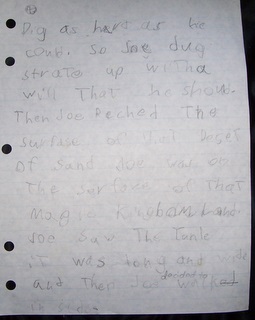 Dig as hard as he
coud. So Joe dug
strate up with a
will That he shove.
Then Joe Reched The
surface of that
of sand Joe was on
The surface of That
Magic
Joe saw The Tank
it was long and
and Then Joe decided to walk